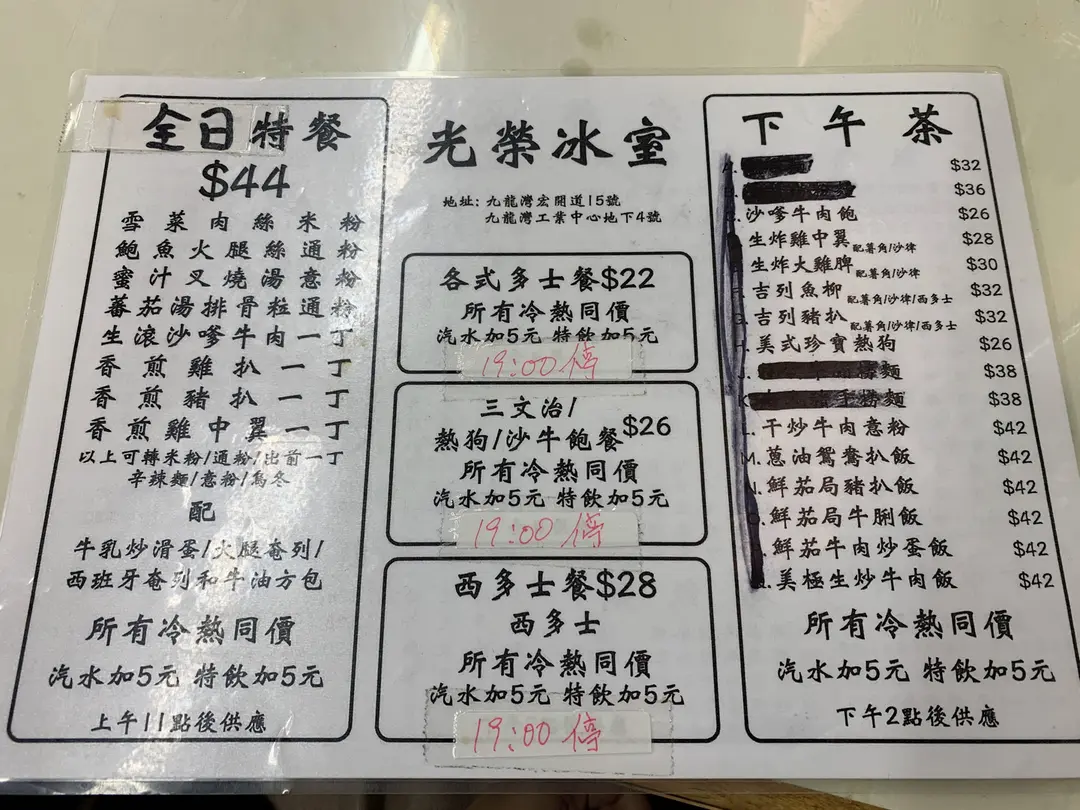 全日特餐
$44
雪菜肉絲米粉
鮑魚火腿絲通粉
蜜汁叉燒湯意粉
蕃茄湯排骨粒通粉
生滾沙嗲牛肉一丁
香煎雞扒一丁
香煎豬扒一丁
香煎雞中翼一丁
以上可轉米粉/通粉/出前一丁
辛辣麵/意粉/烏冬
配
牛乳炒滑蛋/火腿奄列/
西班牙奄列和牛油方包
所有冷熱同價
汽水加5元 特飲加5元
上午11點後供應
光榮冰室
地址: 九龍灣宏開道15號
九龍灣工業中心地下4號
各式多士餐$22
所有冷熱同價
汽水加5元 特飲加5元
19:00 停
三文治/
熱狗/沙牛飽餐$26
所有冷熱同價
汽水加5元 特飲加5元
19:00 停
西多士餐$28
西多士
所有冷熱同價
汽水加5元 特飲加5元
19:00 停
下午茶
$32
$36
沙嗲牛肉飽 $26
生炸雞中翼 配薯角/沙律 $28
生炸大雞髀 配薯角/沙律 $30
吉列魚柳 配薯角/沙律/西多士 $32
吉列豬扒 配薯角/沙律/西多士 $32
美式珍寶熱狗 $26
麵 $38
麵 $38
干炒牛肉意粉 $42
M.蔥油鴛鴦扒飯 $42
鮮茄局豬扒飯 $42
鮮茄局牛脷飯 $42
鮮茄牛肉炒蛋飯 $42
美極生炒牛肉飯 $42
所有冷熱同價
汽水加5元 特飲加5元
下午2點後供應